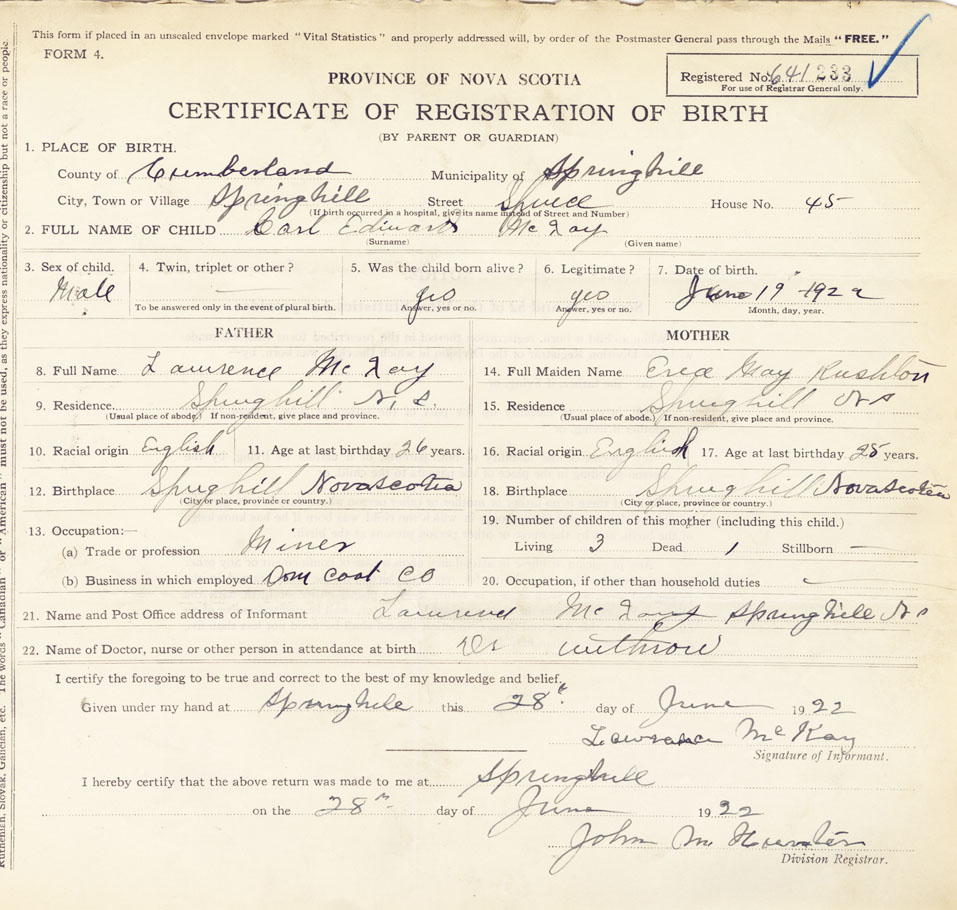 This form if placed in an unsealed envelope marked "Vital Statistics" and properly addressed will, by order of the Postmaster General pass through the Mails "FREE."
FORM 4.
Registered No. 641 233
For use of Registrar General only.
PROVINCE OF NOVA SCOTIA
CERTIFICATE OF REGISTRATION OF BIRTH
(BY PARENT OR GUARDIAN)
1. PLACE OF BIRTH.
County of Cumberland Municipality of Springhill
City, Town or Village Springhill Street Spruce House No. 45
(If birth occurred in a hospital, give its name instead of Street and Number)
2. FULL NAME OF CHILD Carl Edward McKay
(Surname) (Given name)
3. Sex of child. 4. Twin, triplet or other? 5. Was the child born alive? 6. Legitimate? 7. Date of birth.
Male yes yes June 19 1922
To be answered only in the event of plural birth. Answer, yes or no. Answer, yes or no. Month, day, year.
FATHER MOTHER
8. Full Name Lawrence McKay 14. Full Maiden Name May Rushton
9. Residence Springhill N.S. 15. Residence Springhill N S
(Usual place of abode.) If non-resident, give place and province. (Usual place of abode.) If non-resident, give place and province.
10. Racial origin English 11. Age at last birthday 26 years. 16. Racial origin English 17. Age at last birthday 25 years.
12. Birthplace Springhill Nova Scotia 18. Birthplace Springhill Nova Scotia
(City or place, province or country.) (City or place, province or country.)
13. Occupation:— 19. Number of children of this mother (including this child.)
(a) Trade or profession Miner Living 3 Dead 1 Stillborn —
(b) Business in which employed Dom Coal Co 20. Occupation, if other than household duties
21. Name and Post Office address of Informant Lawrence McKay Springhill N S
22. Name of Doctor, nurse or other person in attendance at birth Dr Withrow
I certify the foregoing to be true and correct to the best of my knowledge and belief.
Given under my hand at Springhill this 28th day of June 1922
Lawrence McKay
Signature of Informant.
I hereby certify that the above return was made to me at Springhill
on the 28th day of June 1922
John M
Division Registrar.
Ruthenian, Slovak, Galician, etc. The words "Canadian" or "American" must not be used, as they express nationality or citizenship but not a race or people.